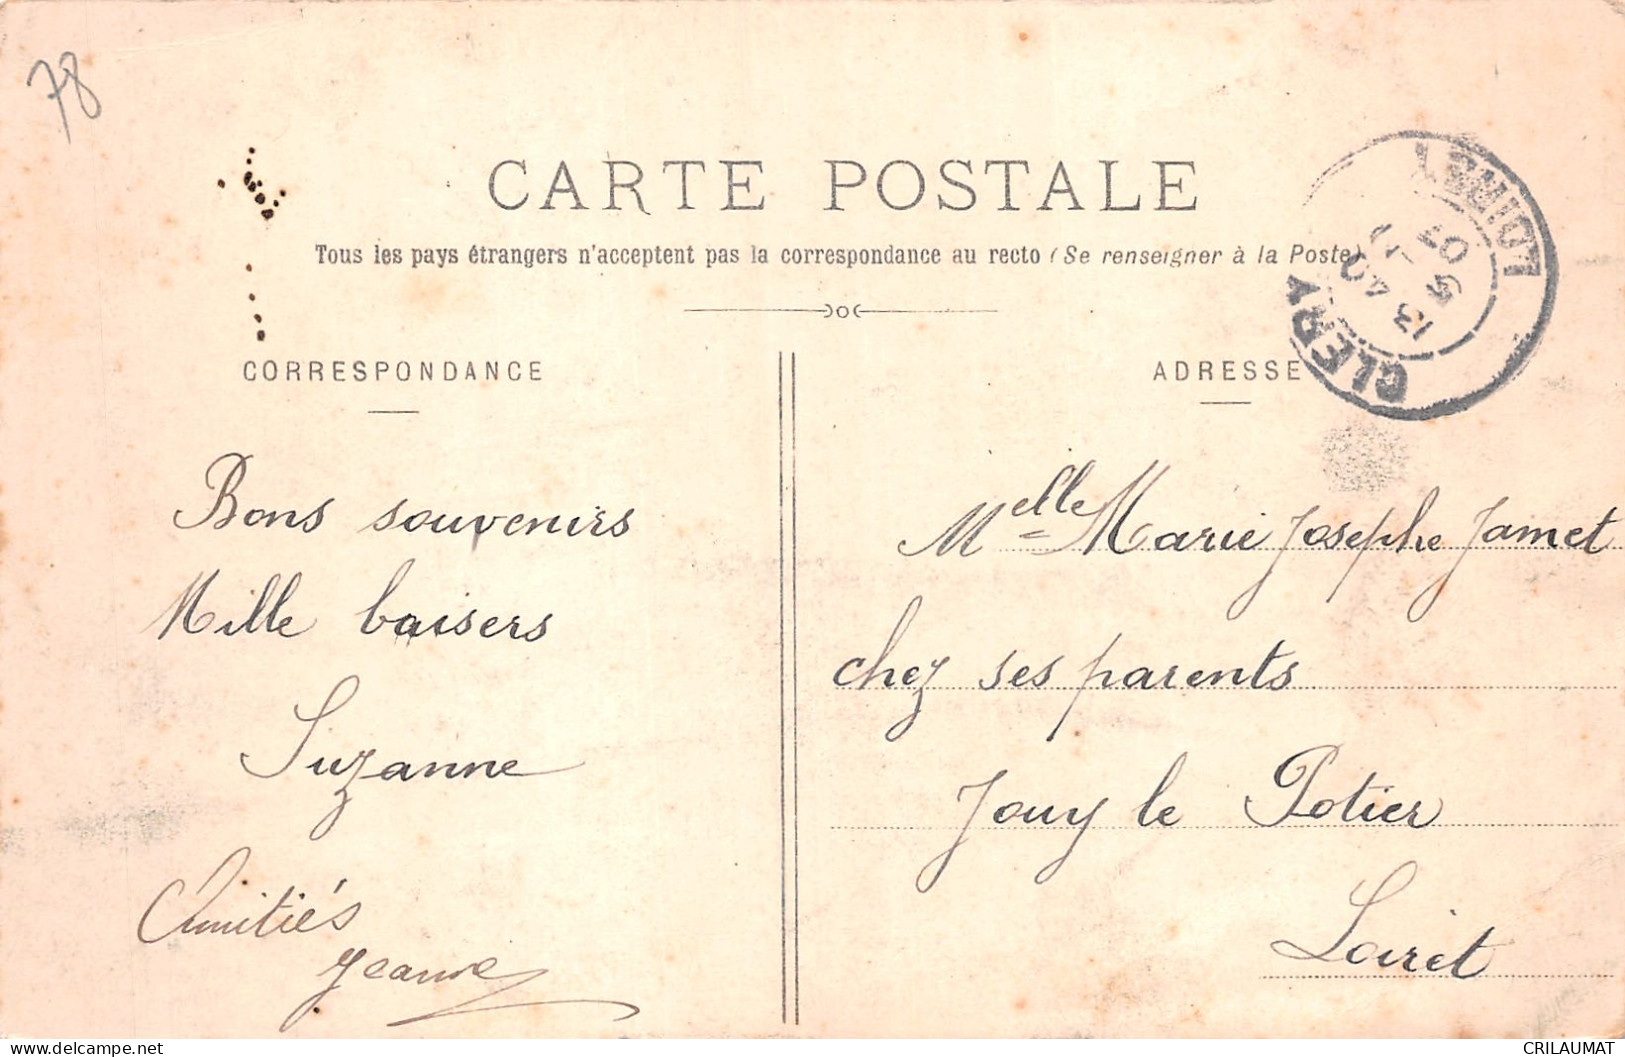 78
CARTE POSTALE
Tous les pays étrangers n'acceptent pas la correspondance au recto (Se renseigner à la Poste)
CORRESPONDANCE
ADRESSE
CLERY
LOIRET
13 40
5
07
Bons souvenirs
Mille baisers
Suzanne
Amitiés
Jeanne
Melle Marie Josephe Jamet
chez ses parents
Jouy le Potier
Loiret
CRILAUMAT